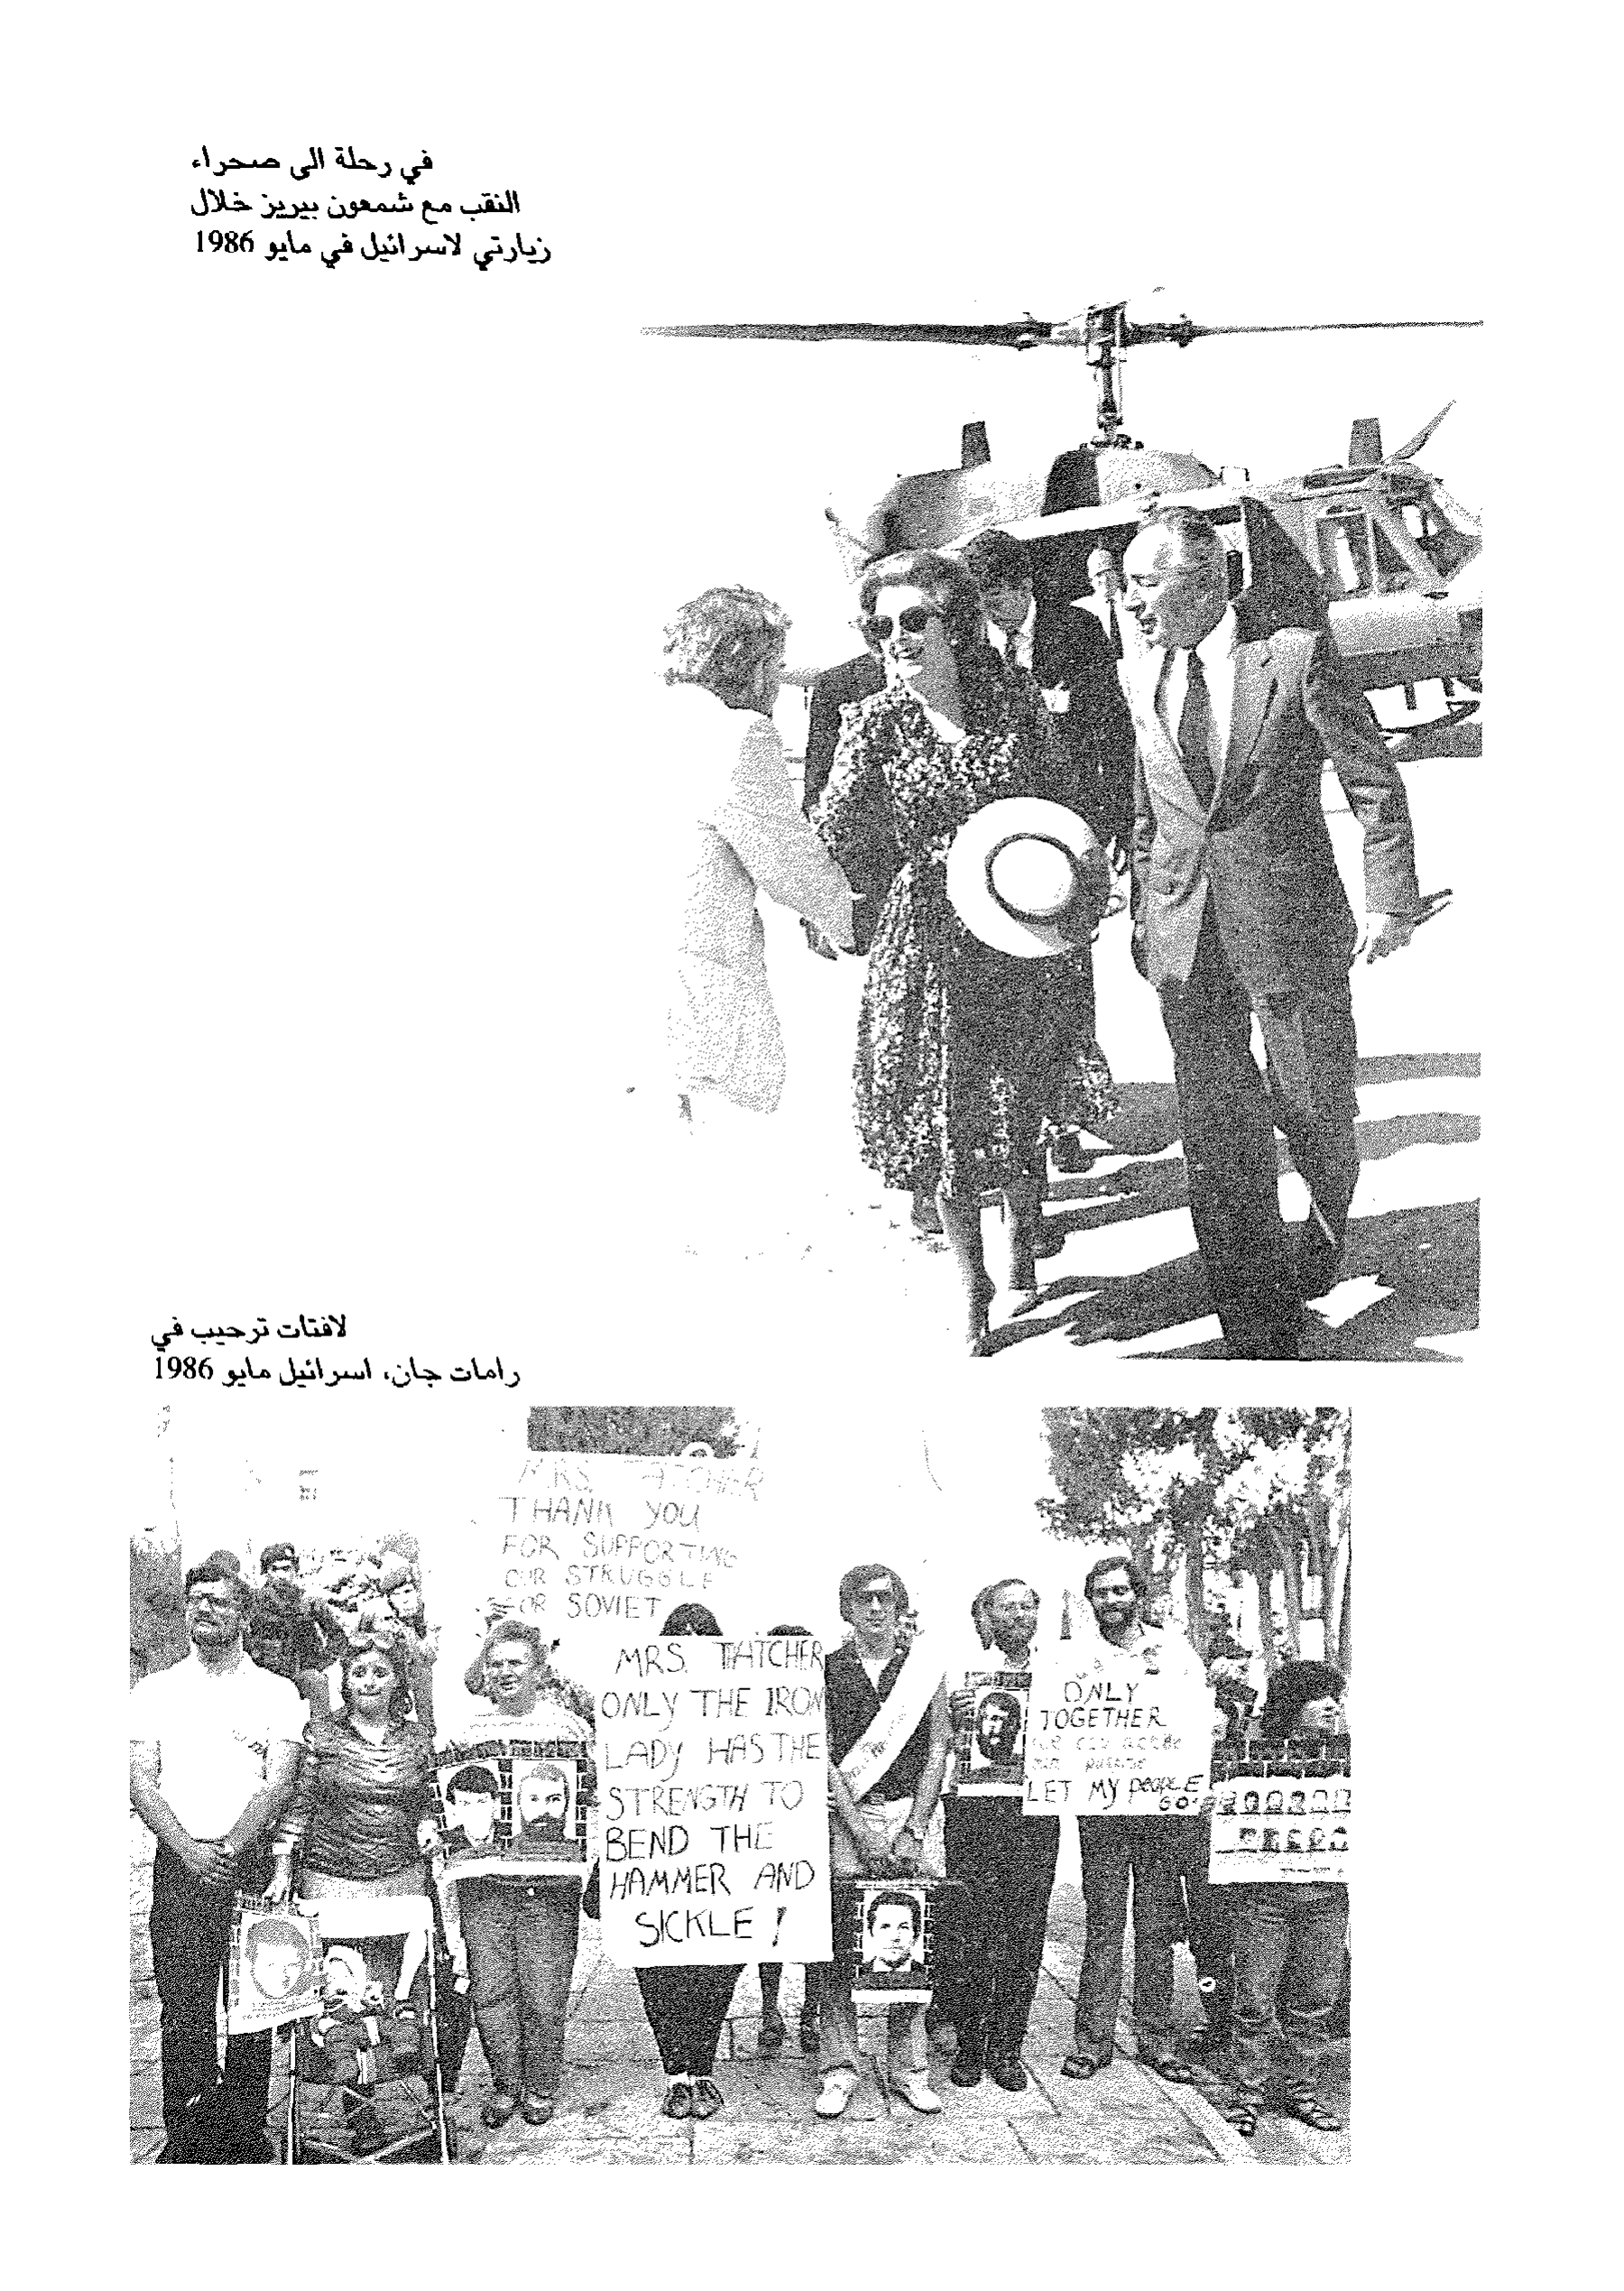 في رحلة الى صحراء
النقب مع شمعون بيريز خلال
زيارتي لاسرائيل في مايو 1986
لافتات ترحيب في
رامات جان، اسرائيل مايو 1986
MRS. THATCHER
THANK YOU
FOR SUPPORTING
OUR STRUGGLE
FOR SOVIET
MRS. THATCHER
ONLY THE IRON
LADY HAS THE
STRENGTH TO
BEND THE
HAMMER AND
SICKLE !
ONLY
TOGETHER
LET MY PEOPLE
GO!